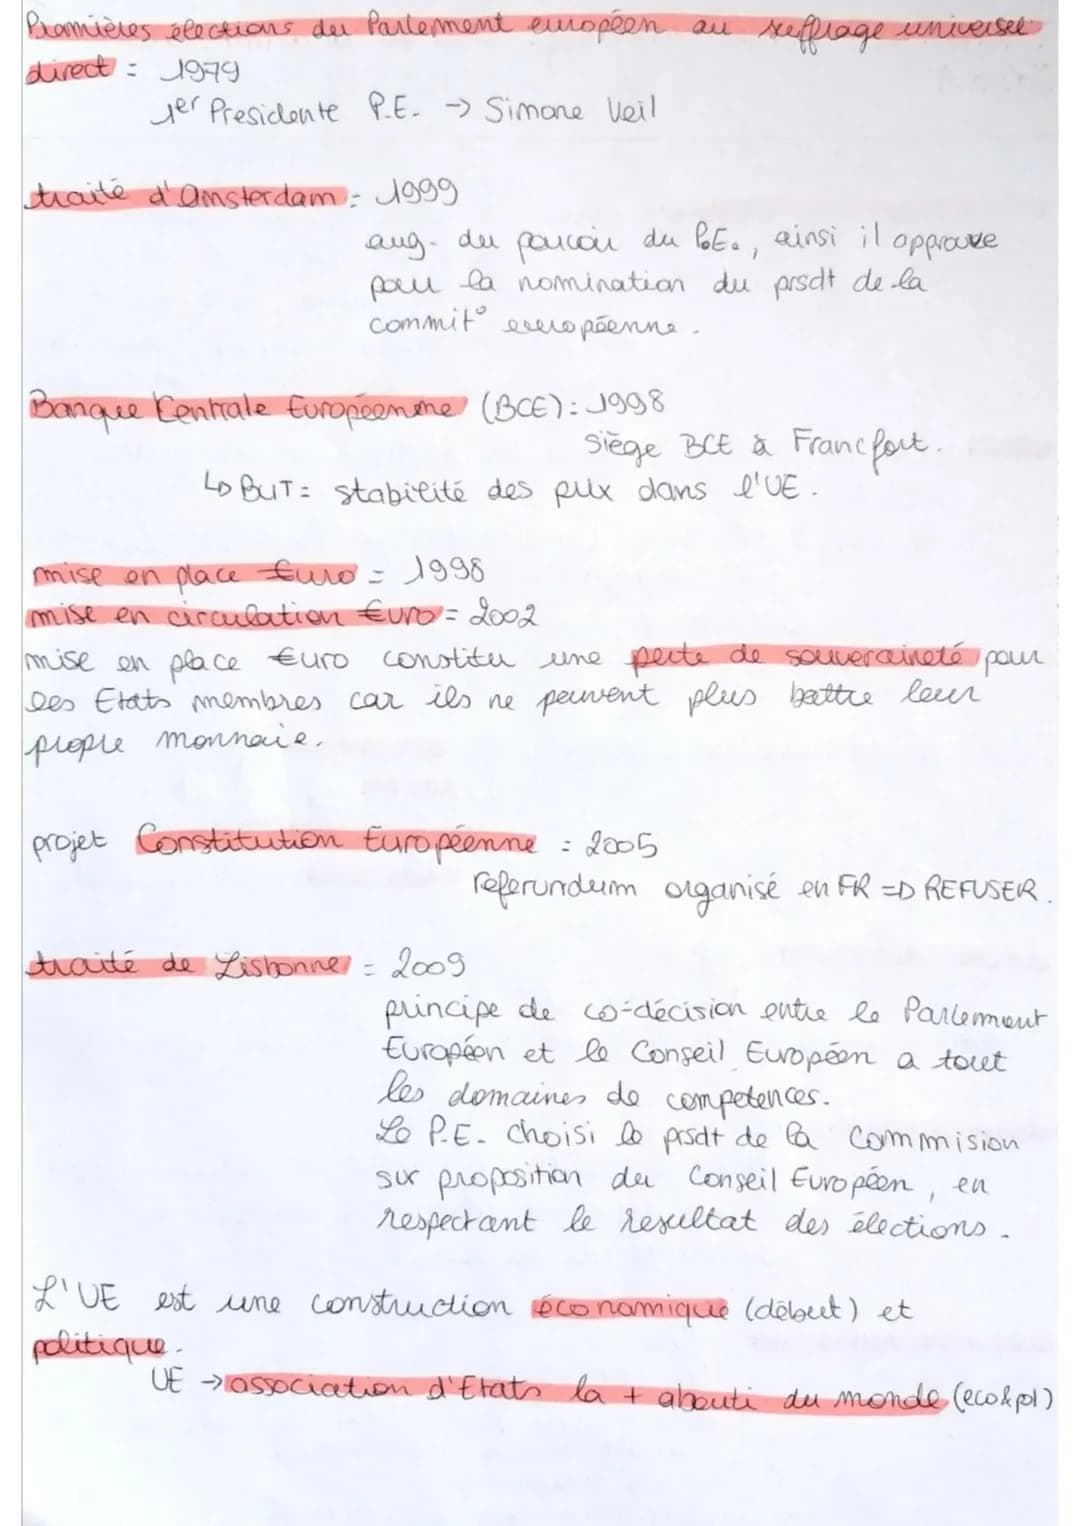 Premières élections du Parlement européen au suffrage universel
direct : 1979
1er Presidente P.E. → Simone Veil
traité d'Amsterdam = 1999
aug. du pouvoir du P.E., ainsi il approuve
pour la nomination du prsdt de la
commit° européenne.
Banque Centrale Européenne (BCE) : 1998
Siège BCE à Francfort.
↳ BUT = stabilité des prix dans l'UE.
mise en place €uro = 1998
mise en circulation €uro = 2002
mise en place €uro constitu une perte de souveraineté pour
les Etats membres car ils ne peuvent plus battre leur
propre monnaie.
projet Constitution Européenne = 2005
referundum organisé en FR => REFUSER.
traité de Lisbonne = 2009
principe de co-décision entre le Parlement
Européen et le Conseil Européen a tout
les domaines de competences.
Le P.E. choisi le prsdt de la Commision
sur proposition du Conseil Européen, en
respectant le resultat des élections.
L'UE est une construction économique (début) et
politique.
UE → association d'Etats la + abouti du monde (eco & pol)